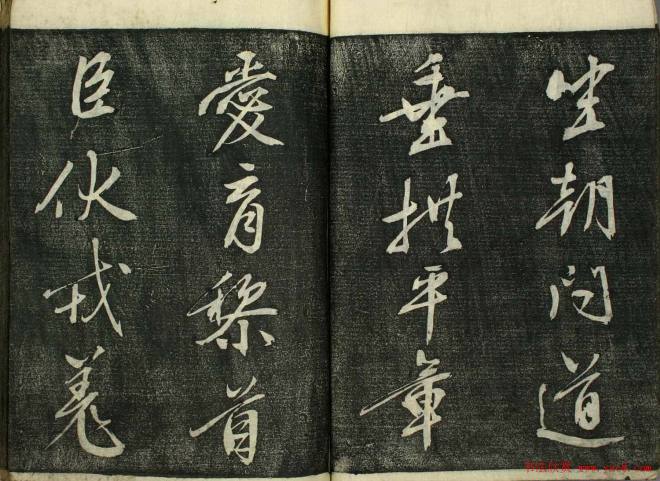 坐朝问道
垂拱平章
愛育黎首
臣伏戎羌